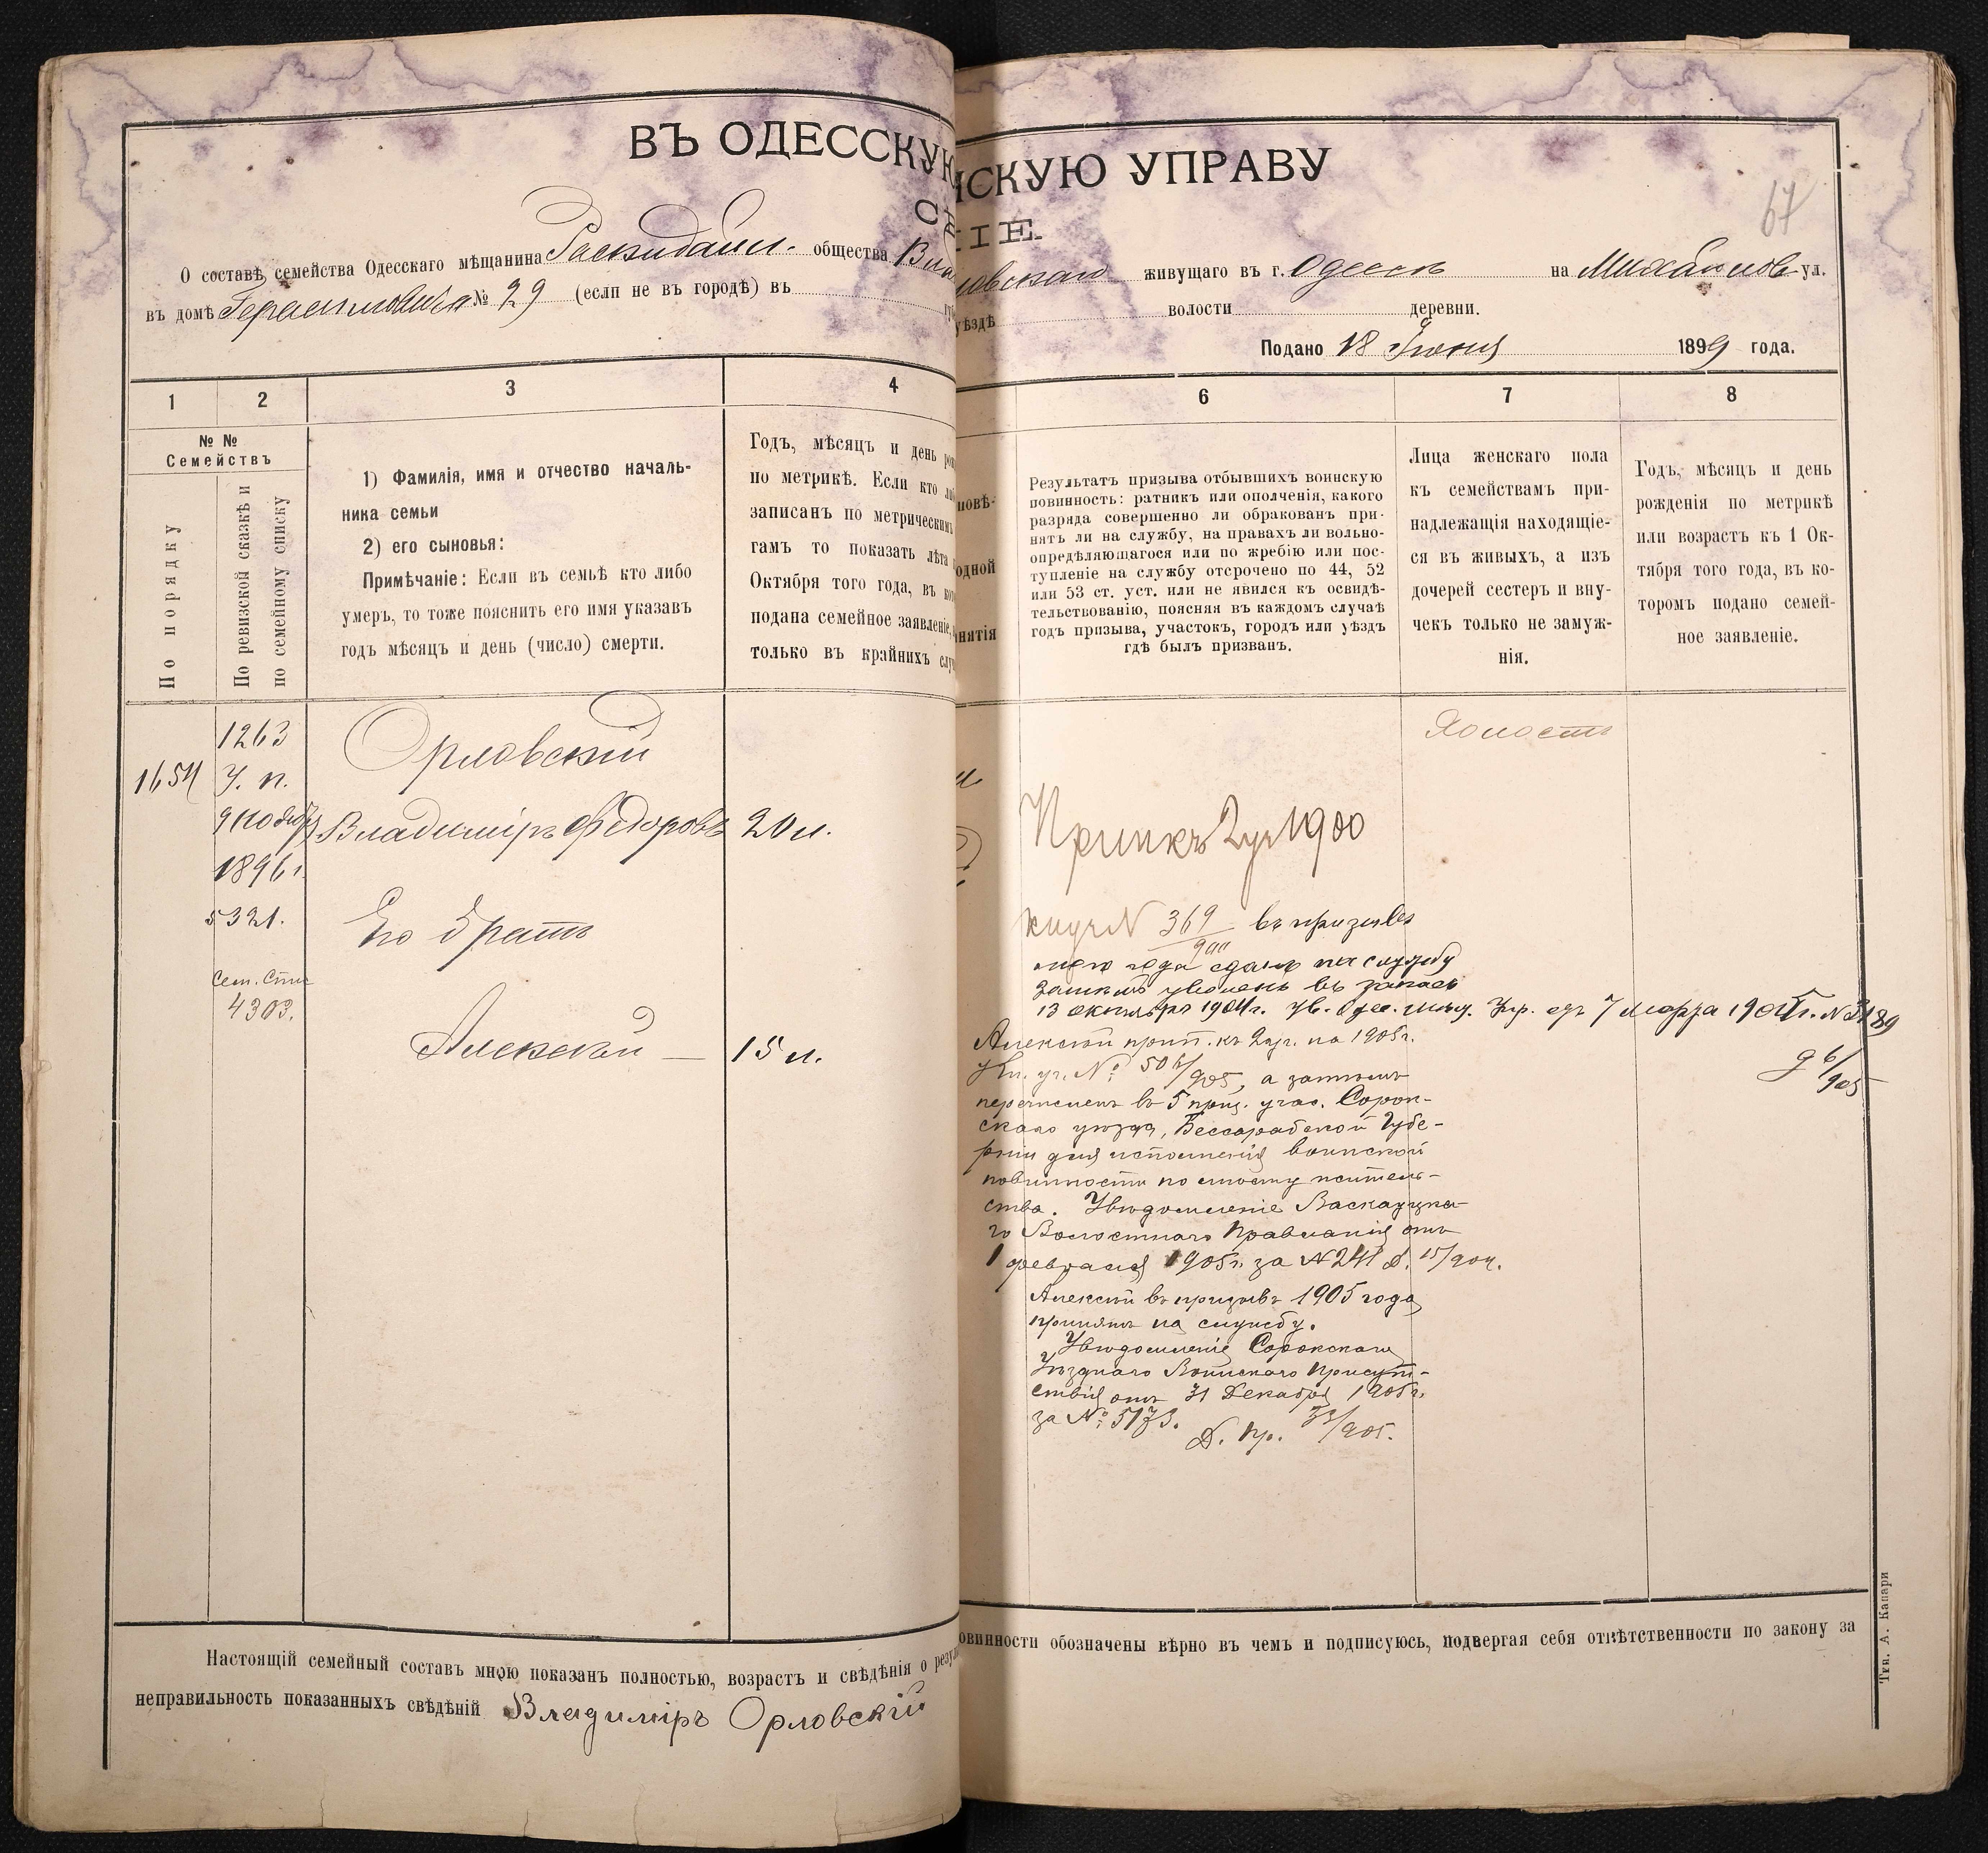 ВЪ ОДЕССКУЮ
НСКУЮ УПРАВУ
67
О составѣ семейства Одесскаго мѣщанина Раскидайл. общества
живущаго въ г. Одессѣ на Михайлов ул.
въ домѣ Герасимовича № 29 (если не въ городѣ) въ
уѣздѣ волости деревни.
Подано 18 Іюня 1899 года.
1 2 3 4
6 7 8
№ №
Семействъ
По порядку
По ревизской сказкѣ и
по семейному списку
1) Фамилія, имя и отчество началь-
ника семьи
2) его сыновья:
Примѣчаніе: Если въ семьѣ кто либо
умеръ, то тоже пояснить его имя указавъ
годъ мѣсяцъ и день (число) смерти.
Годъ, мѣсяцъ и день
по метрикѣ. Если кто
записанъ по метрическимъ
гамъ то показать лѣта
Октября того года, въ
подана семейное заявленіе,
только въ крайнихъ
повѣ-
одной
нятія
Результатъ призыва отбывшихъ воинскую
повинность: ратникъ или ополченія, какого
разряда совершенно ли обракованъ при-
нятъ ли на службу, на правахъ ли вольно-
опредѣляющагося или по жребію или пос-
тупленіе на службу отсрочено по 44, 52
или 53 ст. уст. или не явился къ освидѣ-
тельствованію, поясняя въ каждомъ случаѣ
годъ призыва, участокъ, городъ или уѣздъ
гдѣ былъ призванъ.
Лица женскаго пола
къ семействамъ при-
надлежащія находящіе-
ся въ живыхъ, а изъ
дочерей сестеръ и вну-
чекъ только не замуж-
нія.
Годъ, мѣсяцъ и день
рожденія по метрикѣ
или возрастъ къ 1 Ок-
тября того года, въ ко-
торомъ подано семей-
ное заявленіе.
1654
1263
У. п.
9 Ноября
1896 г.
5321.
Сем. Спис
4303.
Орловскій
Владиміръ Ѳедоровъ 20 л.
Его братъ
Алексѣй — 15 л.
Холостъ
Прип къ 2 уч 1900
къ уч № 369/900 въ призывъ
года сданъ на службу
уволенъ въ запасъ
13 октября 1904 г. Ув. Одес. Упр. отъ 7 марта 1905 г. № 3189
Д 6/905
Алексѣй прип. къ 2 уч. на 1905 г.
Кн. уч. № 506/905, а затѣмъ
перечисленъ въ 5 приз. учас. Сорок-
скаго уѣзда, Бессарабской Губе-
рніи для исполненія воинской
повинности по мѣсту житель-
ства. Увѣдомленіе Васкауцка-
го Волостнаго Правленія отъ
1 февраля 1905 г. за № 241 Д. 15/904.
Алексѣй въ призывъ 1905 года
принятъ на службу.
Увѣдомленіе Сорокскаго
Уѣзднаго Воинскаго Присут-
ствія отъ 31 Декабря 1905 г.
за № 5173. Д. Пр. 33/905.
Настоящій семейный составъ мною показанъ полностью, возрастъ и свѣдѣнія о
овинности обозначены вѣрно въ чемъ и подписуюсь, подвергая себя отвѣтственности по закону за
неправильность показанныхъ свѣдѣній Владиміръ Орловскій
Тип. А. Капари